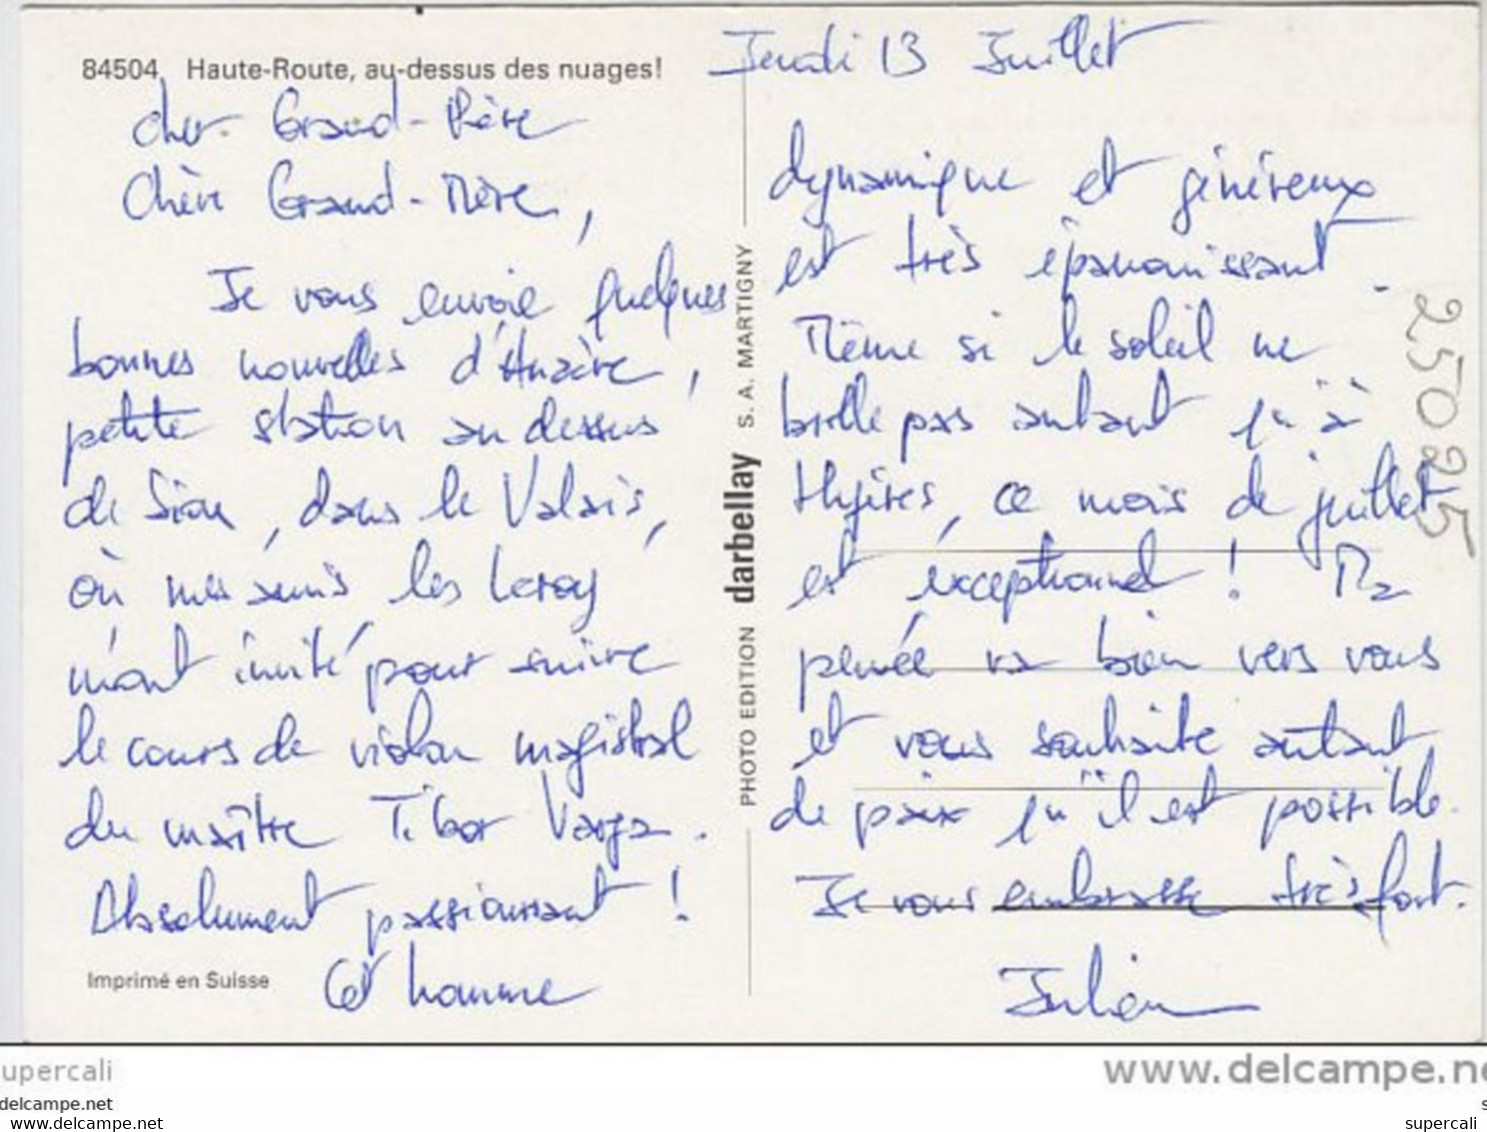 84504 Haute-Route, au-dessus des nuages!
Jeudi 13 Juillet
Cher Grand-Père
Chère Grand-Mère,
Je vous envoie quelques
bonnes nouvelles d'Anzère,
petite station au dessus
de Sion, dans le Valais,
où mes amis les Leroy
m'ont invité pour suivre
le cours de violon magistral
du maître Tibor Varga.
Absolument passionnant !
Cet homme
Imprimé en Suisse
PHOTO EDITION darbellay S. A. MARTIGNY
dynamique et généreux
est très épanouissant.
Même si le soleil ne
brille pas autant qu'à
Hyères, ce mois de juillet
est exceptionnel ! Ma
pensée va bien vers vous
et vous souhaite autant
de paix qu'il est possible.
Je vous embrasse très fort.
Julien
25025
upercali
www.delcampe.ne
delcampe.net
www.delcampe.net
s
supercali